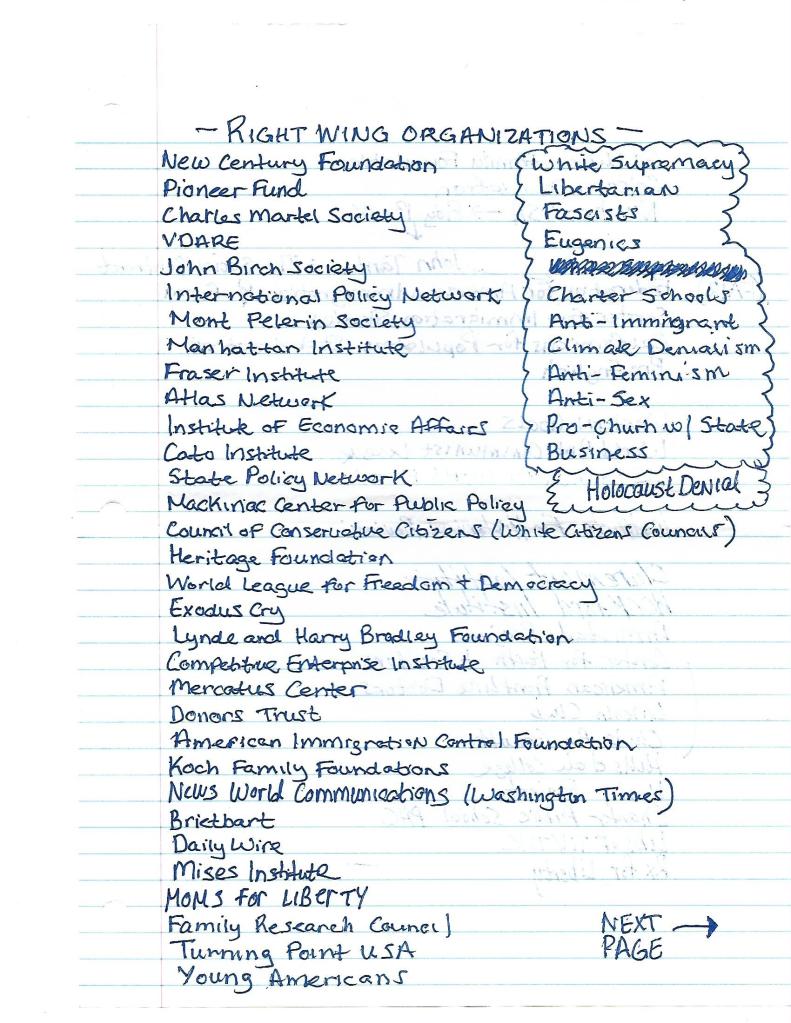 — RIGHT WING ORGANIZATIONS —
New Century Foundation
Pioneer Fund
Charles Martel Society
VDARE
John Birch Society
International Policy Network
Mont Pelerin Society
Manhattan Institute
Fraser Institute
Atlas Network
Institute of Economic Affairs
Cato Institute
State Policy Network
Mackinac Center for Public Policy
Council of Conservative Citizens (White Citizens Councils)
Heritage Foundation
World League for Freedom + Democracy
Exodus Cry
Lynde and Harry Bradley Foundation
Competitive Enterprise Institute
Mercatus Center
Donors Trust
American Immigration Control Foundation
Koch Family Foundations
News World Communications (Washington Times)
Brietbart
Daily Wire
Mises Institute
MOMS FOR LIBERTY
Family Research Council
Turning Point USA
Young Americans
White Supremacy
Libertarian
Fascists
Eugenics
Charter Schools
Anti-Immigrant
Climate Denialism
Anti-Feminism
Anti-Sex
Pro-Churh w/ State
Business
Holocaust Denial
NEXT →
PAGE